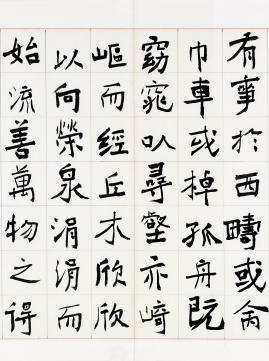 有事於西疇或命
巾車或掉孤舟既
窈窕以尋壑亦崎
嶇而經丘木欣欣
以向榮泉涓涓而
始流善萬物之得